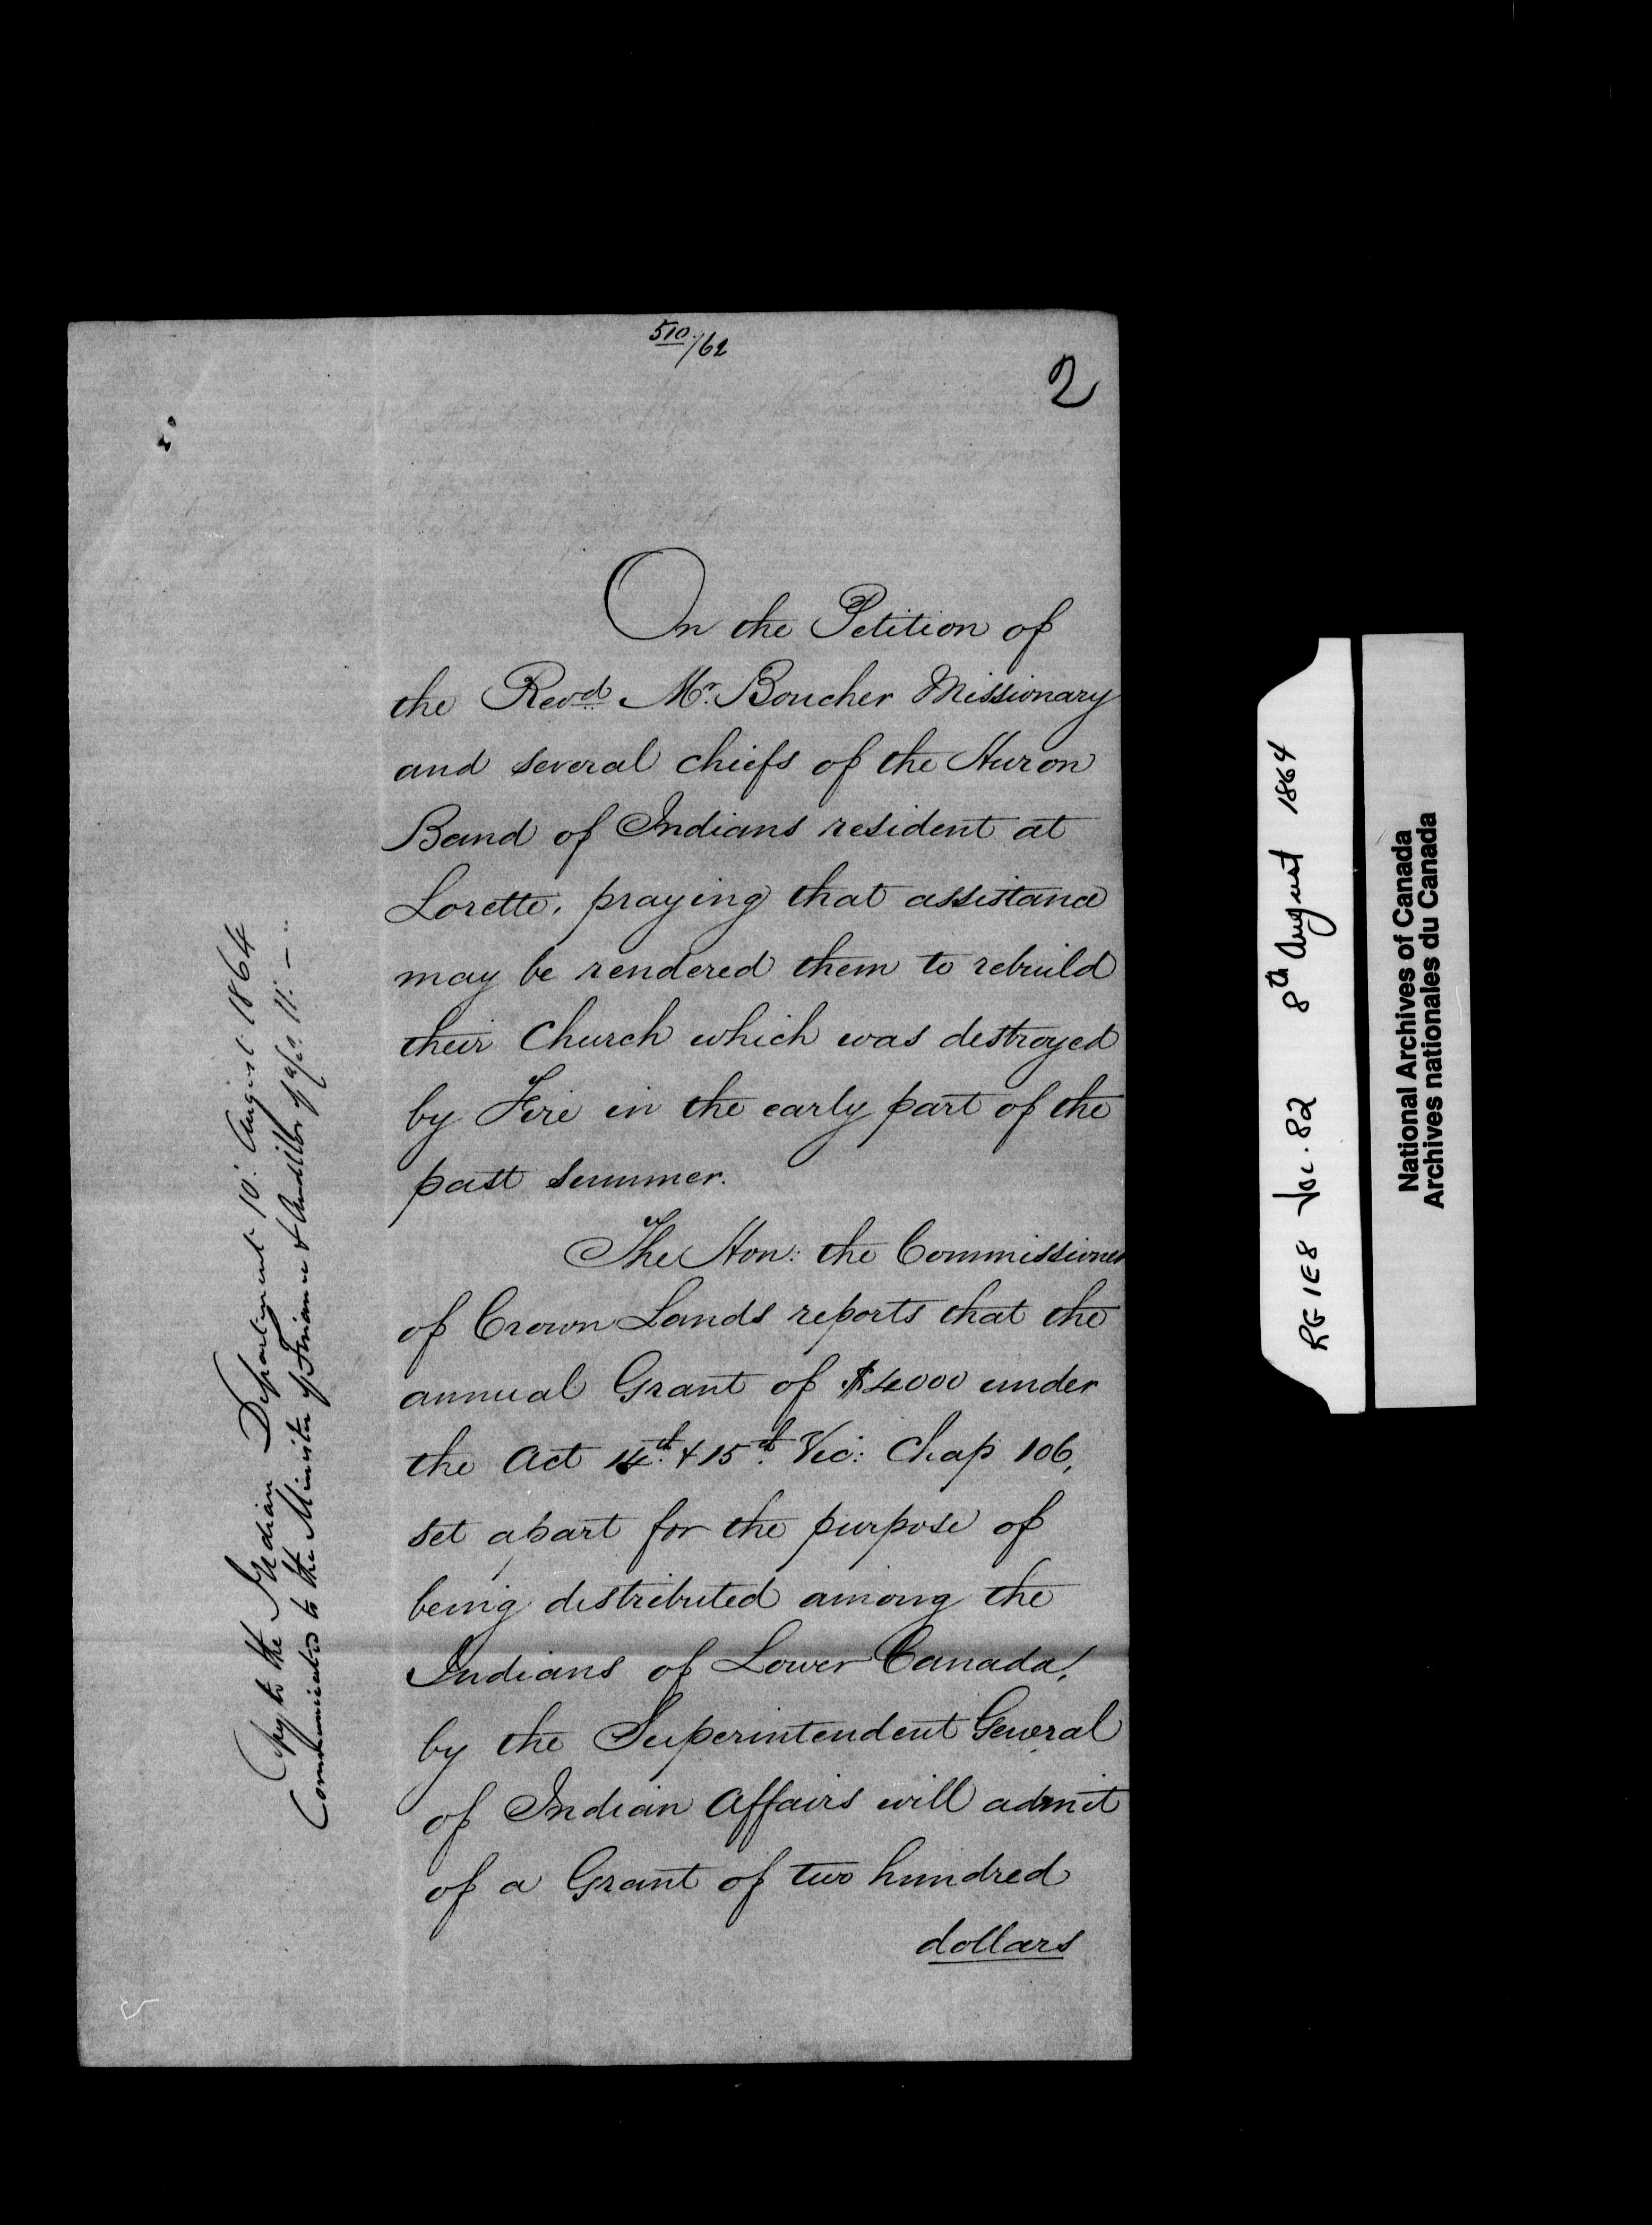 510/62
2
On the Petition of
the Revd. Mr. Boucher Missionary
and several chiefs of the Huron
Band of Indians resident at
Lorette, praying that assistance
may be rendered them to rebuild
their Church which was destroyed
by Fire in the early part of the
past summer.
The Hon: the Commissioner
of Crown Lands reports that the
annual Grant of $4000 under
the Act 14th. & 15th. Vic: Chap 106,
set apart for the purpose of
being distributed among the
Indians of Lower Canada,
by the Superintendent General
of Indian Affairs will admit
of a Grant of two hundred
dollars
Copy to the Indian Department 10: August 1864
Communicated to the Minister of Finance & Auditor of a/cs 11: — "
RG 1E8 Vol. 82 8th August 1864
National Archives of Canada
Archives nationales du Canada